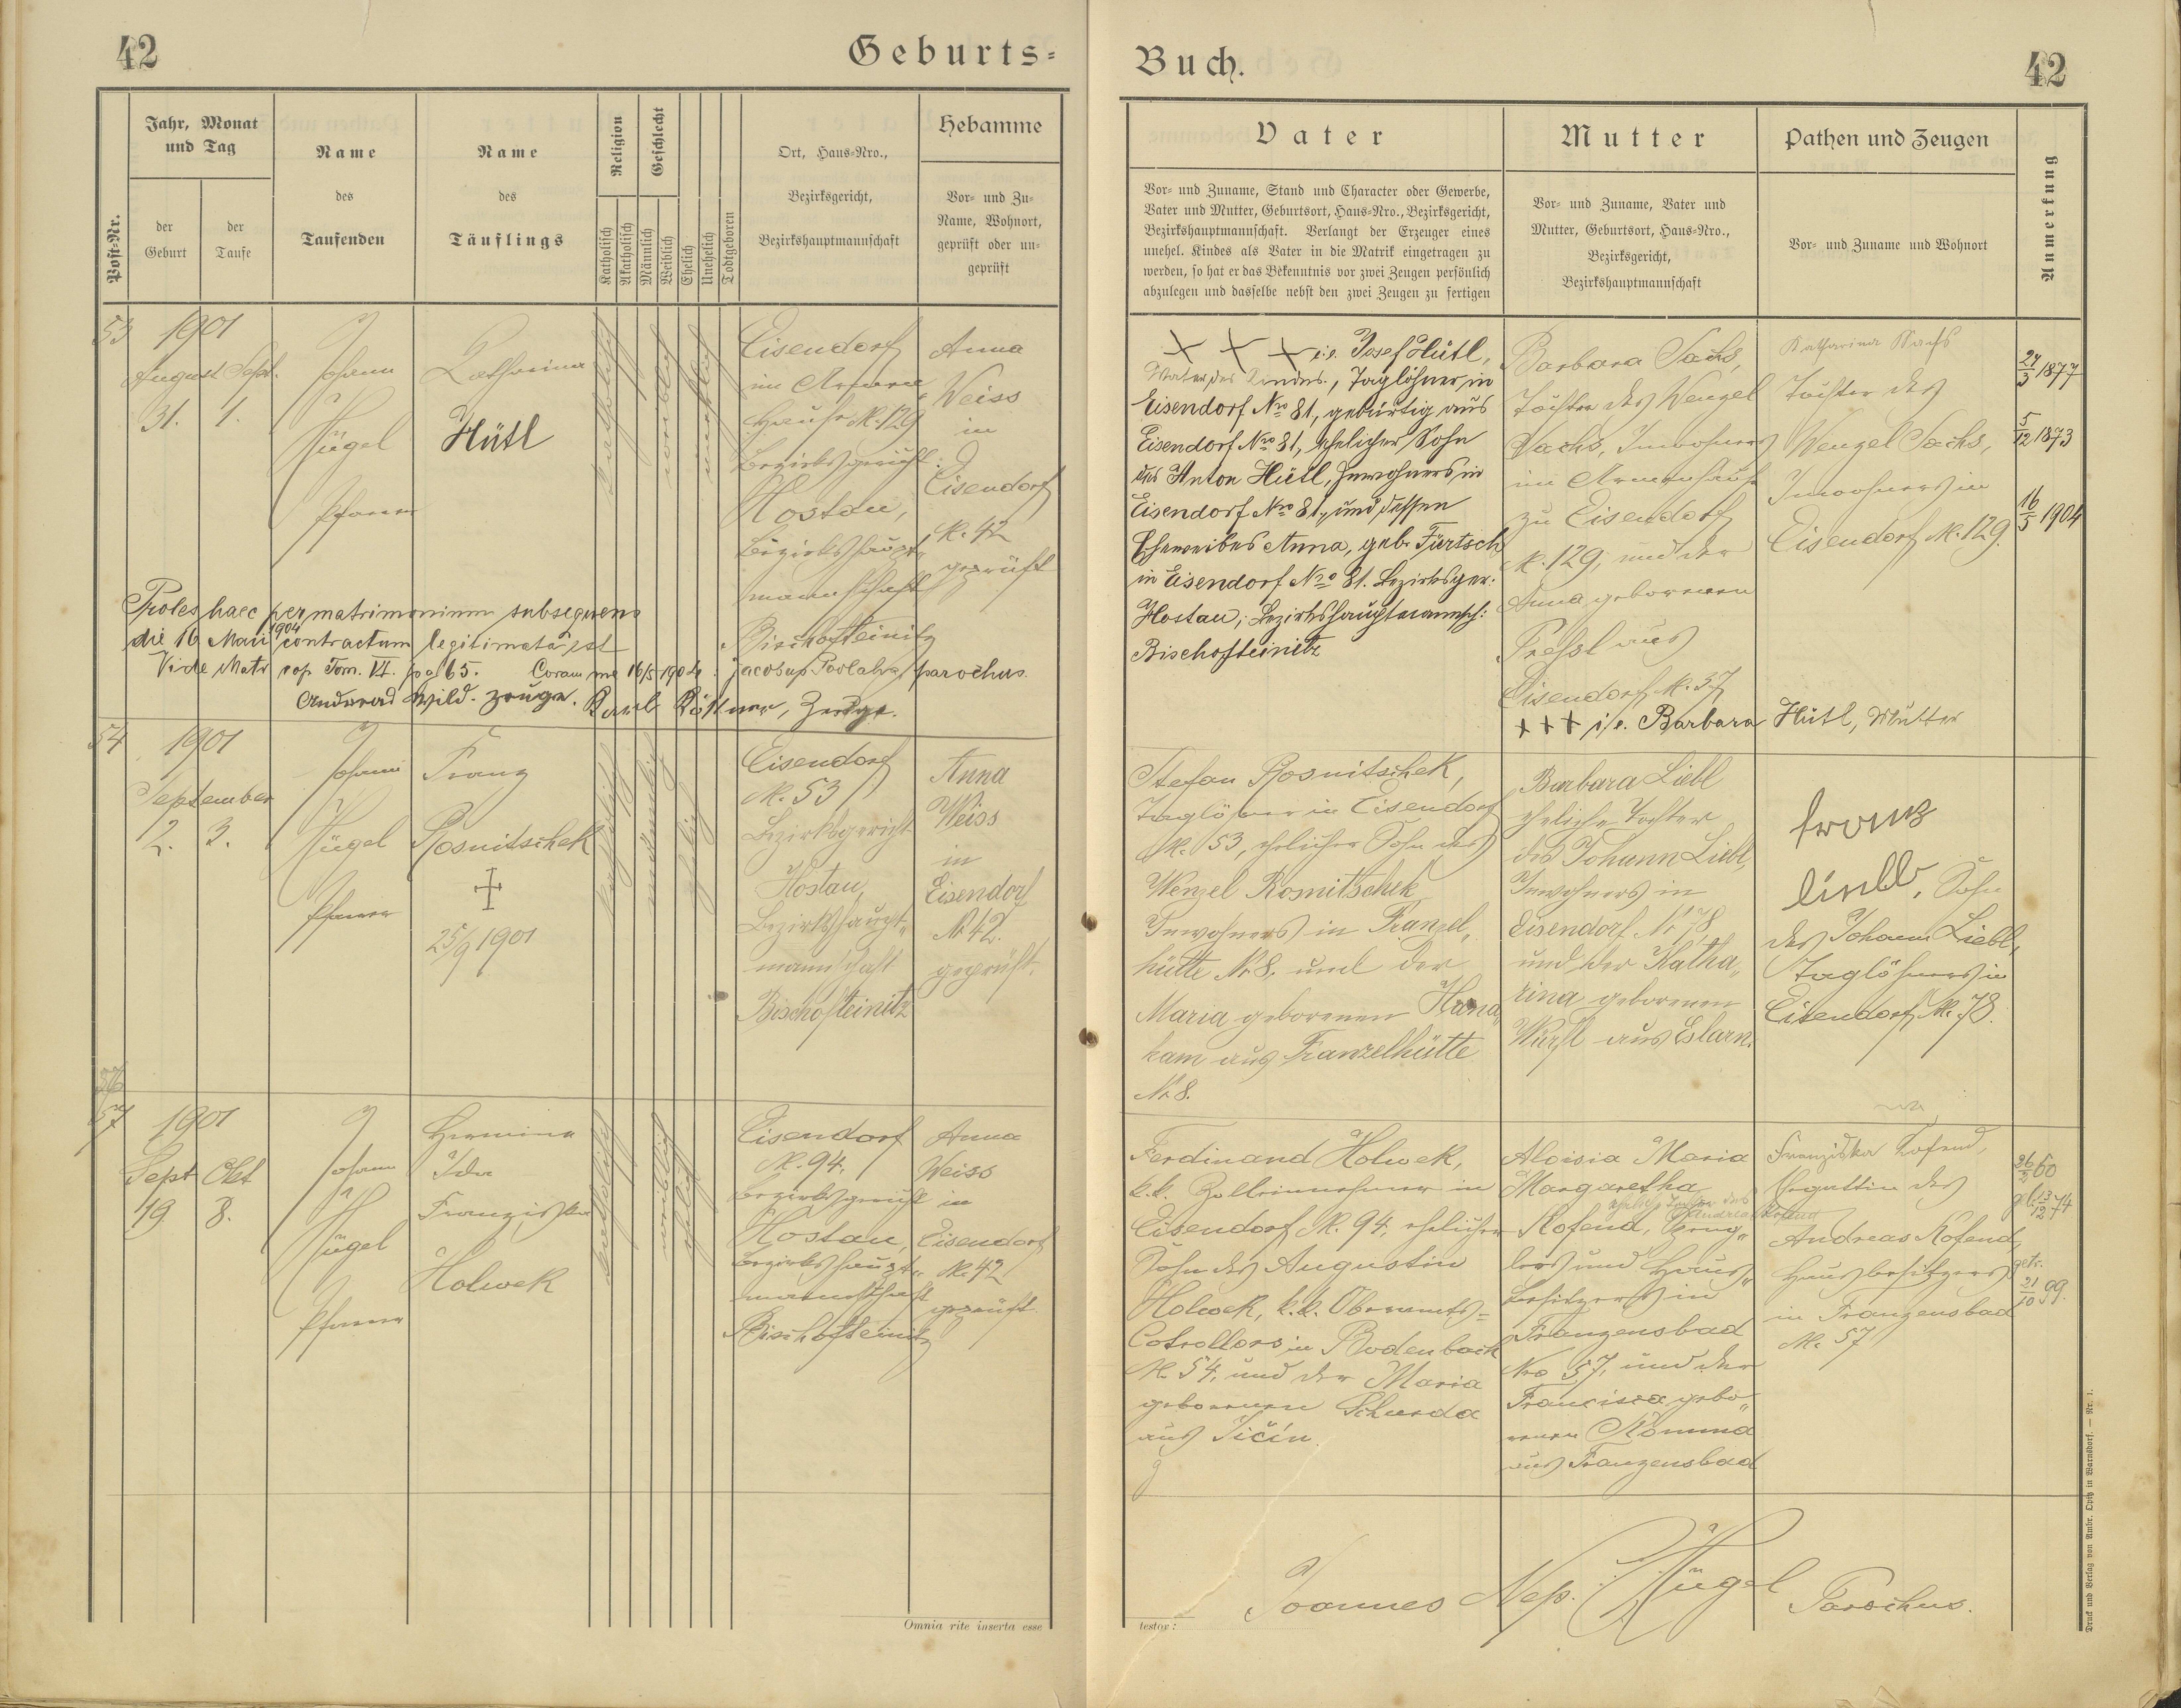 42
Geburts-
Buch.
42
Post-Nr.
Jahr, Monat
und Tag
der
Geburt
der
Taufe
Name
des
Taufenden
Name
des
Täuflings
Religion
Katholisch
Akatholisch
Geschlecht
Männlich
Weiblich
Ehelich
Unehelich
Todtgeboren
Ort, Haus-Nro.,
Bezirksgericht,
Bezirkshauptmannschaft
Hebamme
Vor- und Zu-
Name, Wohnort,
geprüft oder un-
geprüft
Vater
Vor- und Zuname, Stand und Character oder Gewerbe,
Vater und Mutter, Geburtsort, Haus-Nro., Bezirksgericht,
Bezirkshauptmannschaft. Verlangt der Erzeuger eines
unehel. Kindes als Vater in die Matrik eingetragen zu
werden, so hat er das Bekenntnis vor zwei Zeugen persönlich
abzulegen und dasselbe nebst den zwei Zeugen zu fertigen
Mutter
Vor- und Zuname, Vater und
Mutter, Geburtsort, Haus-Nro.,
Bezirksgericht,
Bezirkshauptmannschaft
Pathen und Zeugen
Vor- und Zuname und Wohnort
Anmerkung
53
1901
August Sept.
31. 1.
Johann
Hügel
Pfarrer
Katharina
Hütl
katholisch
weiblich
unehelich
Eisendorf
im Armen-
hause N. 129
Bezirksgericht:
Hostau,
Bezirkshaupt-
mannschaft
Bischofteinitz
Anna
Weiss
in
Eisendorf
N. 42
geprüft
Proles haec per matrimonium subsequens
die 16 Maii 1904 contractum legitimata est
Vide Matr. cop. Tom. VI. pag 65. Coram me 16/5 1904: Jacobus parochus.
Wild. Zeuge. Karl Zeuge.
+ + + i.e. Josef Hütl,
Vater des Kindes., Taglöhner in
Eisendorf Nro 81., gebürtig aus
Eisendorf Nro 81, ehelicher Sohn
des Anton Hütl, Inwohners in
Eisendorf Nro 81., und dessen
Eheweibes Anna, geb. Fürtsch
in Eisendorf Nro 81. Bezirksger.
Hostau, Bezirkshauptmannsch:
Bischofteinitz
Barbara Sachs,
Tochter des Wenzel
Sachs, Inwohners
im Armenhause
zu Eisendorf
N. 129, und der
Anna geborenen
Pressl aus
Eisendorf N. 57
+++ i.e. Barbara Hütl, Mutter
Katharina Sachs
Tochter des
Wenzel Sachs,
Inwohners in
Eisendorf N. 129.
27/3 1877
5/12 1873
16/5 1904
54
1901
September
2. 3.
Johann
Hügel
Pfarrer
Franz
Rosnitschek
+
25/9 1901
katholisch
männlich
ehelich
Eisendorf
N. 53
Bezirksgericht
Hostau,
Bezirkshaupt-
mannschaft
Bischofteinitz
Anna
Weiss
in
Eisendorf
N 42.
geprüft.
Stefan Rosnitschek,
Taglöhner in Eisendorf
N. 53, ehelicher Sohn des
Wenzel Rosnitschek
Inwohners in Franzel-
hütte N. 8. und der
Maria geborenen Hana-
kam aus Franzelhütte
N. 8.
Barbara Liebl
eheliche Tochter
des Johann Liebl,
Inwohners in
Eisendorf N. 78
und der Katha-
rina geborenen
Würfl aus Eslarn.
Franz
Liebl, Sohn
des Johann Liebl,
Taglöhners in
Eisendorf N. 78.
57
1901
Sept Okt
19. 8.
Johann
Hügel
Pfarrer
Hermine
Ida
Franziska
Holwek
katholisch
weiblich
ehelich
Eisendorf
N. 94.
Bezirksgericht
Hostau,
Bezirkshaupt-
mannschaft
Bischofteinitz
Anna
Weiss
in
Eisendorf
N. 42
geprüft
Ferdinand Holwek,
k.k. Zolleinnehmer in
Eisendorf N. 94, ehelicher
Sohn des Augustin
Holwek, k.k. Oberamts-
Cotrollors in Bodenbach
N. 54, und der Maria
geborenen
aus Jičín.
Aloisia Maria
Margaretha
eheliche Tochter des
Andreas Kofend
Kofend, Speng-
lers und Haus-
besitzers in
Franzensbad
Nro 57, und der
Francisca gebo-
renen
aus Franzensbad
Franziska Kofend,
Gattin des
Andreas Kofend,
Hausbesitzers
in Franzensbad
N. 57
26/2 60
13/12 74
getr.
21/10 99.
Joannes Nep. Hügel Parochus.
Omnia rite inserta esse
testor:
Druck und Verlag von Ambr. Opitz in Warnsdorf. — Nr. 1.